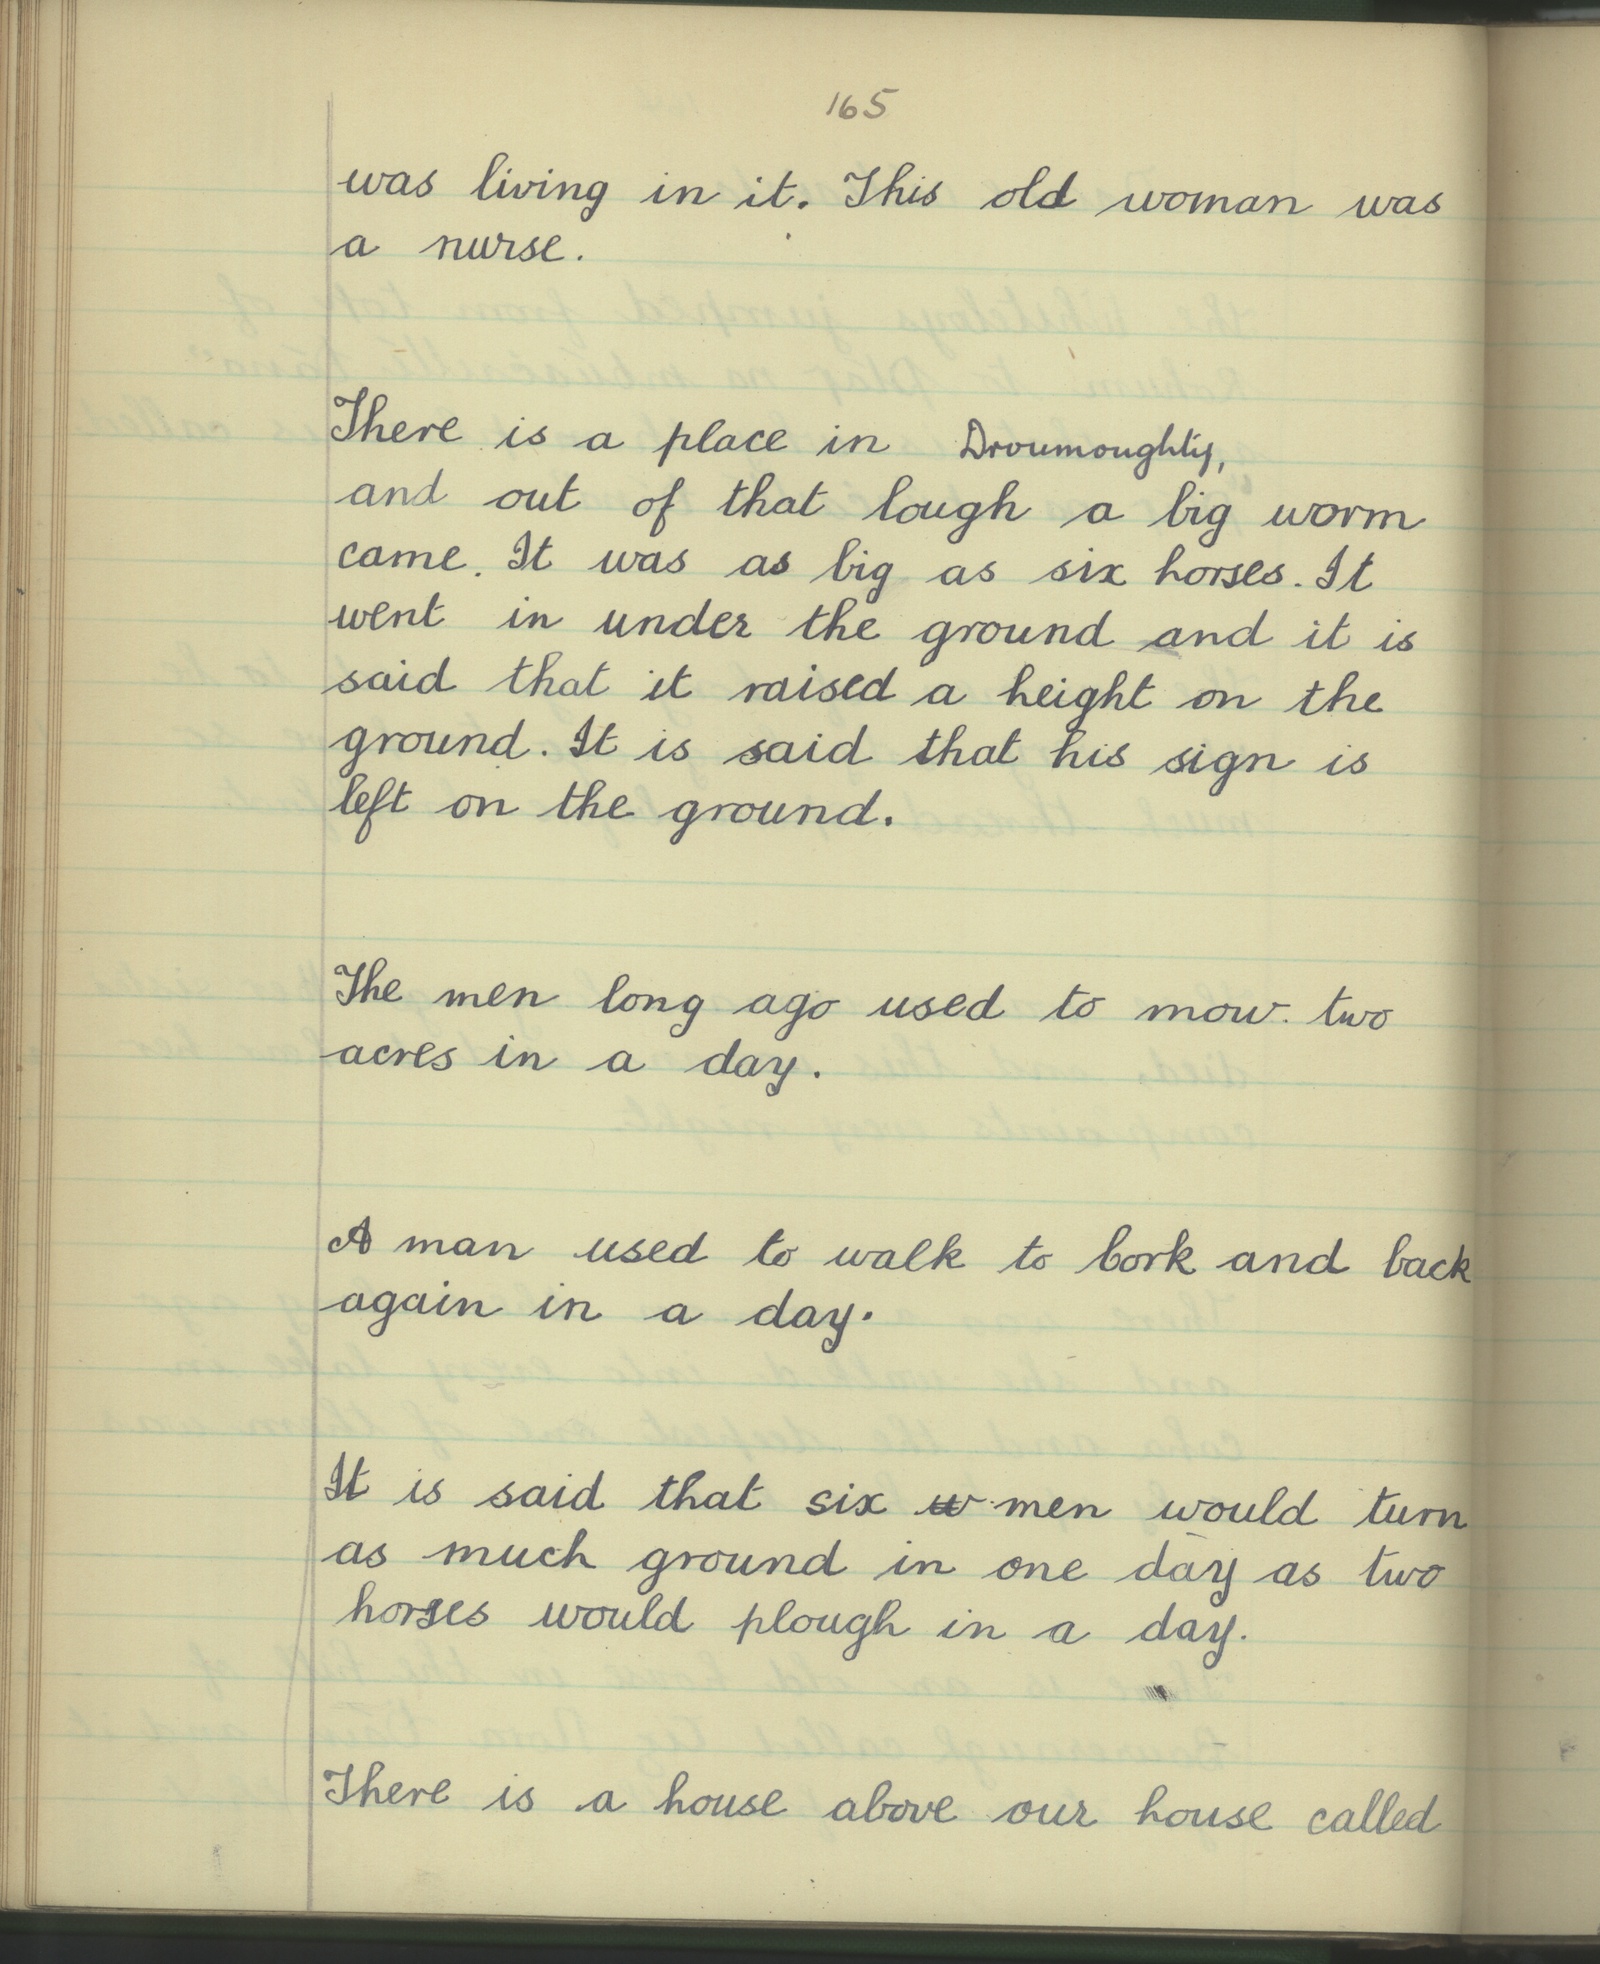 165
was living in it. This old woman was
a nurse.
There is a place in Droumoughty,
and out of that lough a big worm
came. It was as big as six horses. It
went in under the ground and it is
said that it raised a height on the
ground. It is said that his sign is
left on the ground.
The men long ago used to mow two
acres in a day.
A man used to walk to Cork and back
again in a day.
It is said that six men would turn
as much ground in one day as two
horses would plough in a day.
There is a house above our house called